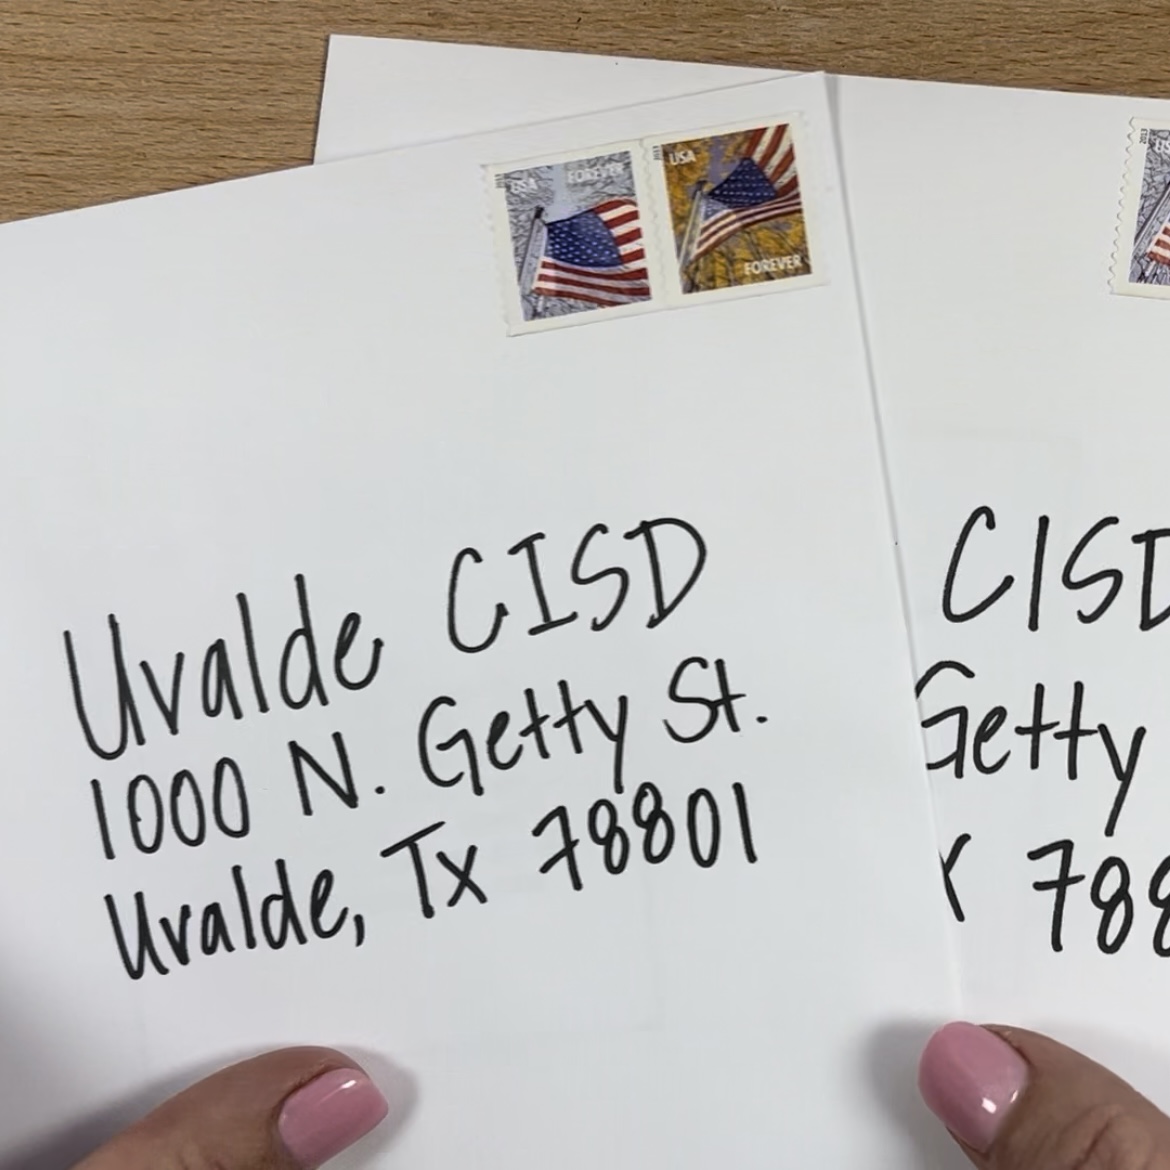 2013
USA
FOREVER
2013
USA
FOREVER
Uvalde CISD
1000 N. Getty St.
Uvalde, Tx 78801
2013
CISD
Getty
788